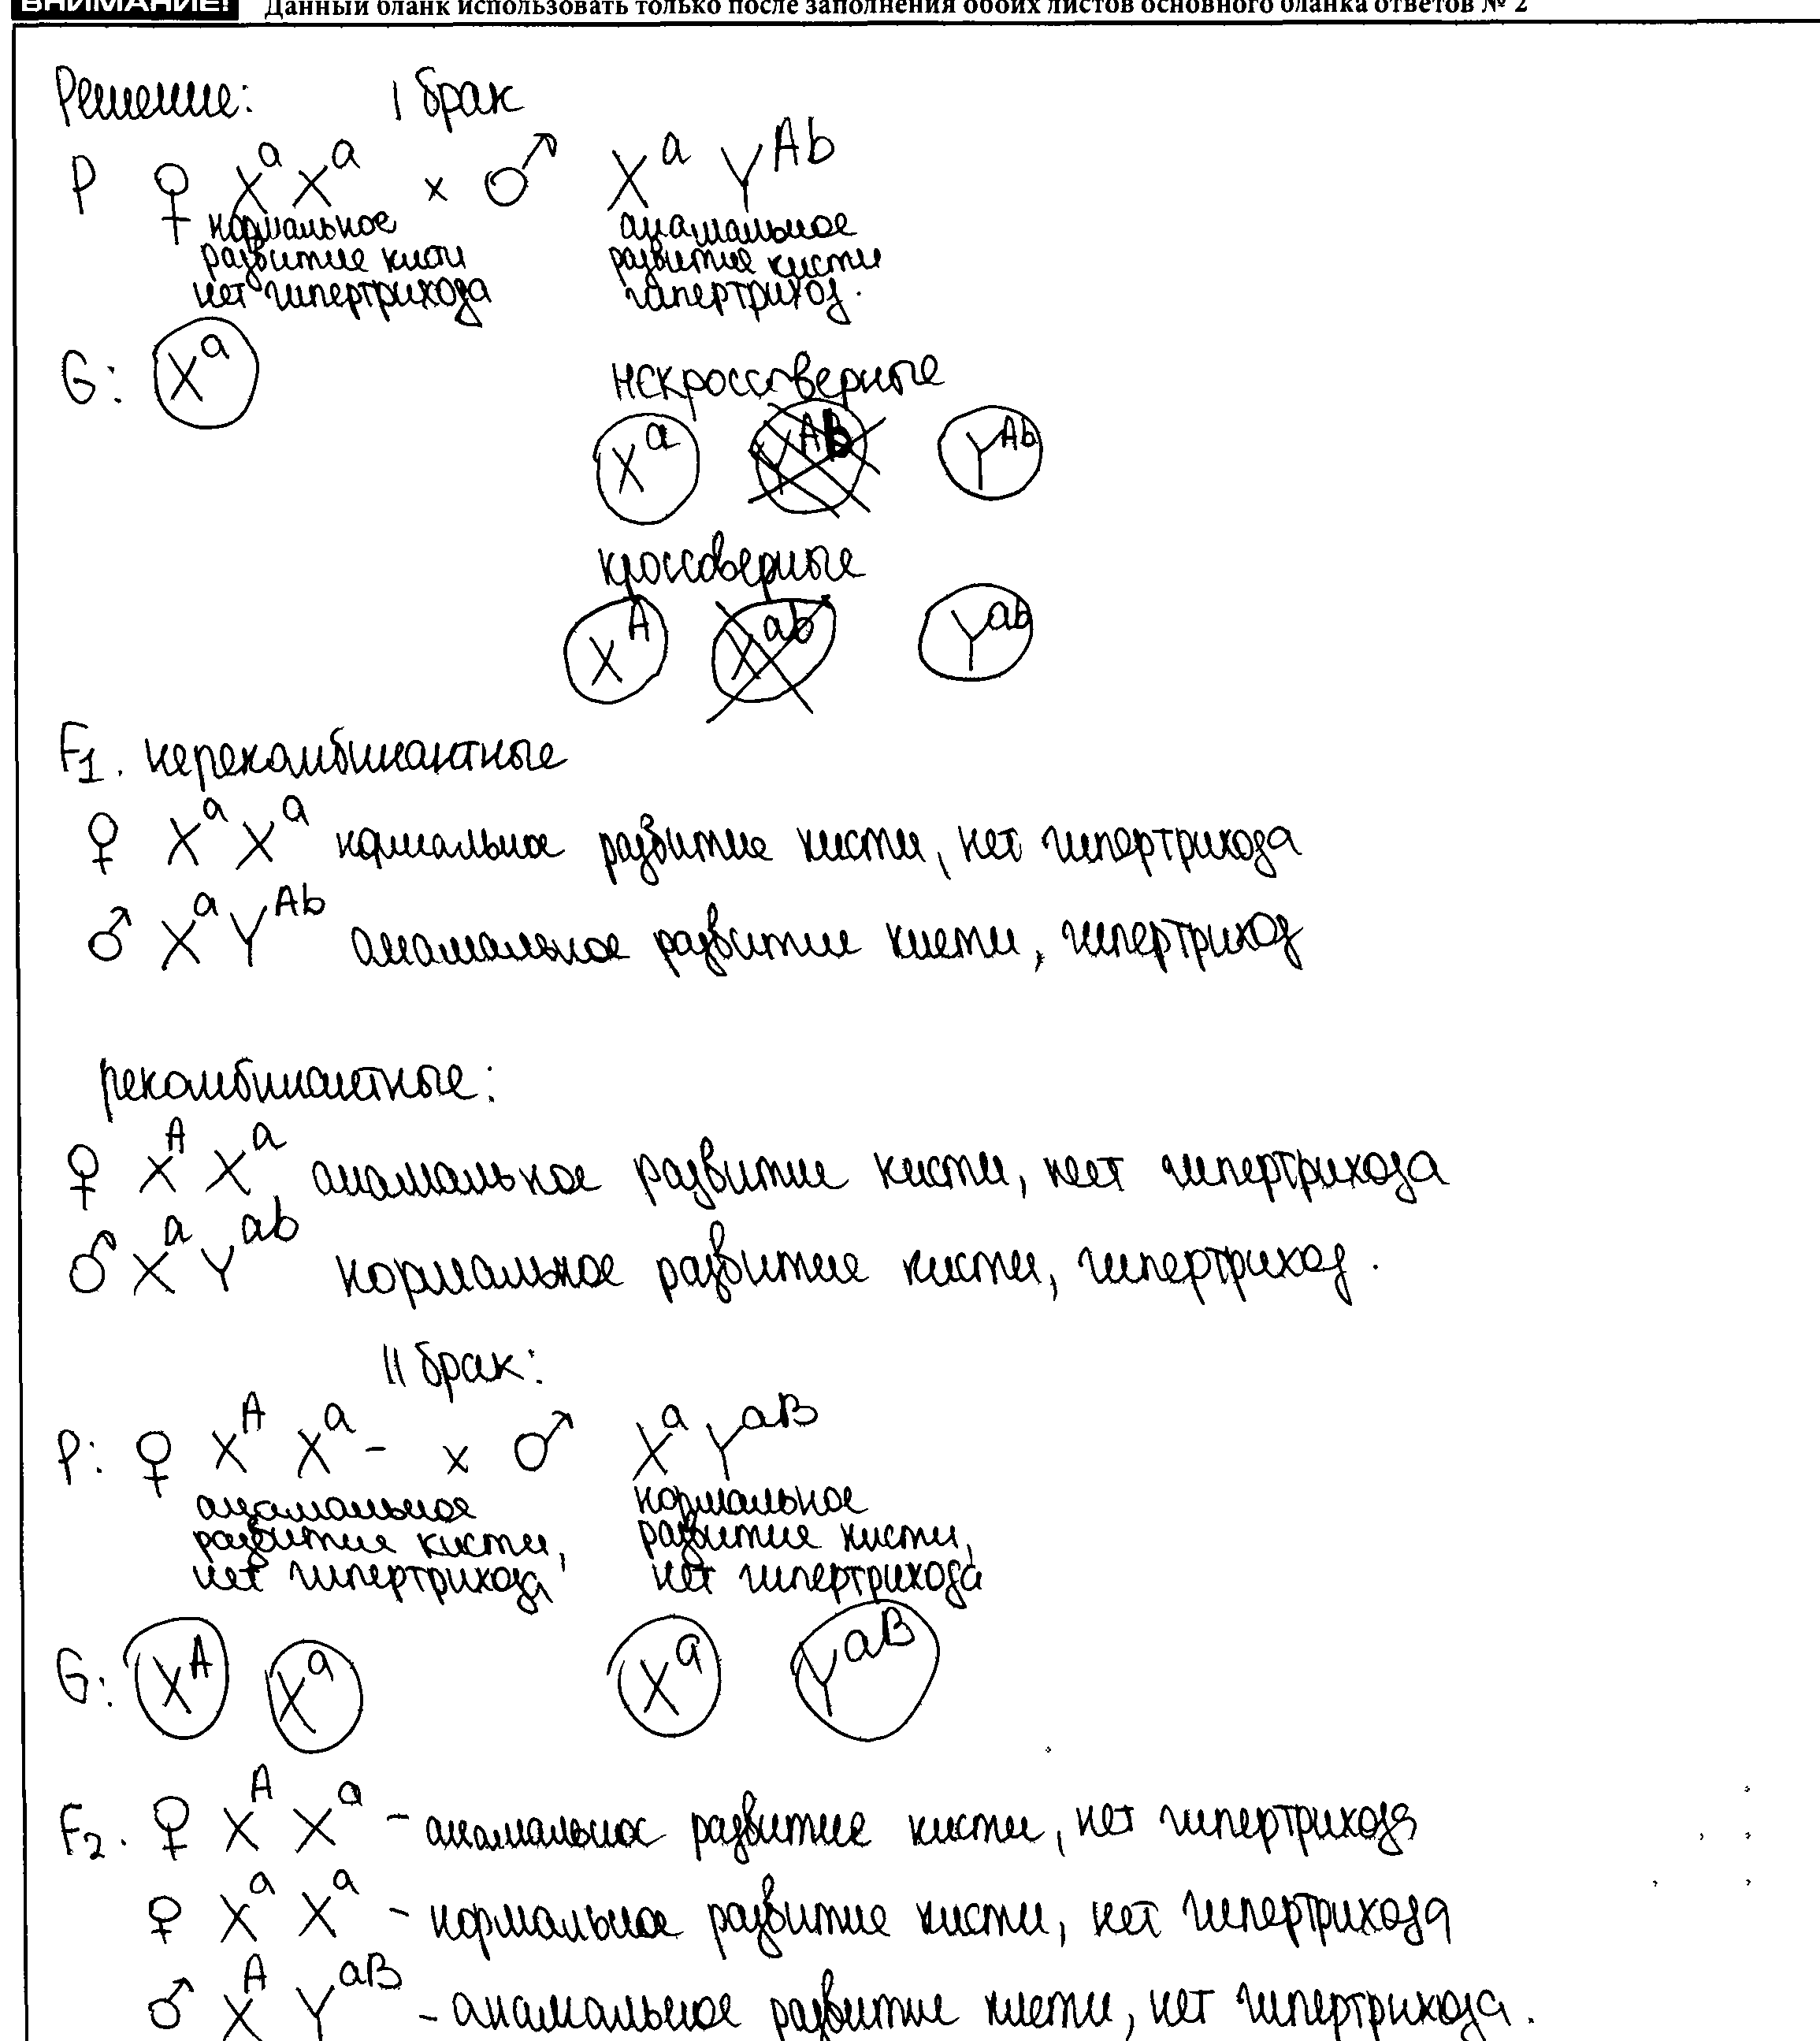 ВНИМАНИЕ! Данный бланк использовать только после заполнения обоих листов основного бланка ответов № 2
Решение: I брак
P ♀ XᵃXᵃ x ♂ Xᵃ Yᴬᵇ
нормальное анамальное
развитие кисти развитие кисти
нет гипертрихоза гипертрихоз.
G: Xᵃ
некроссоверные
Xᵃ Yᴬᵇ
кроссоверные
Xᴬ Xᵃᵇ Yᵃᵇ
F1. нерекомбинантные
♀ XᵃXᵃ нормальное развитие кисти, нет гипертрихоза
♂ XᵃYᴬᵇ анамальное развитие кисти, гипертрихоз
рекомбинантные:
♀ XᴬXᵃ анамальное развитие кисти, нет гипертрихоза
♂ XᵃYᵃᵇ нормальное развитие кисти, гипертрихоз.
II брак:
P: ♀ XᴬXᵃ - x ♂ XᵃYᵃᴮ
анамальное нормальное
развитие кисти, развитие кисти,
нет гипертрихоза нет гипертрихоза
G: Xᴬ Xᵃ Xᵃ Yᵃᴮ
F2. ♀ XᴬXᵃ - анамальное развитие кисти, нет гипертрихоза
♀ XᵃXᵃ - нормальное развитие кисти, нет гипертрихоза
♂ XᴬYᵃᴮ - анамальное развитие кисти, нет гипертрихоза.